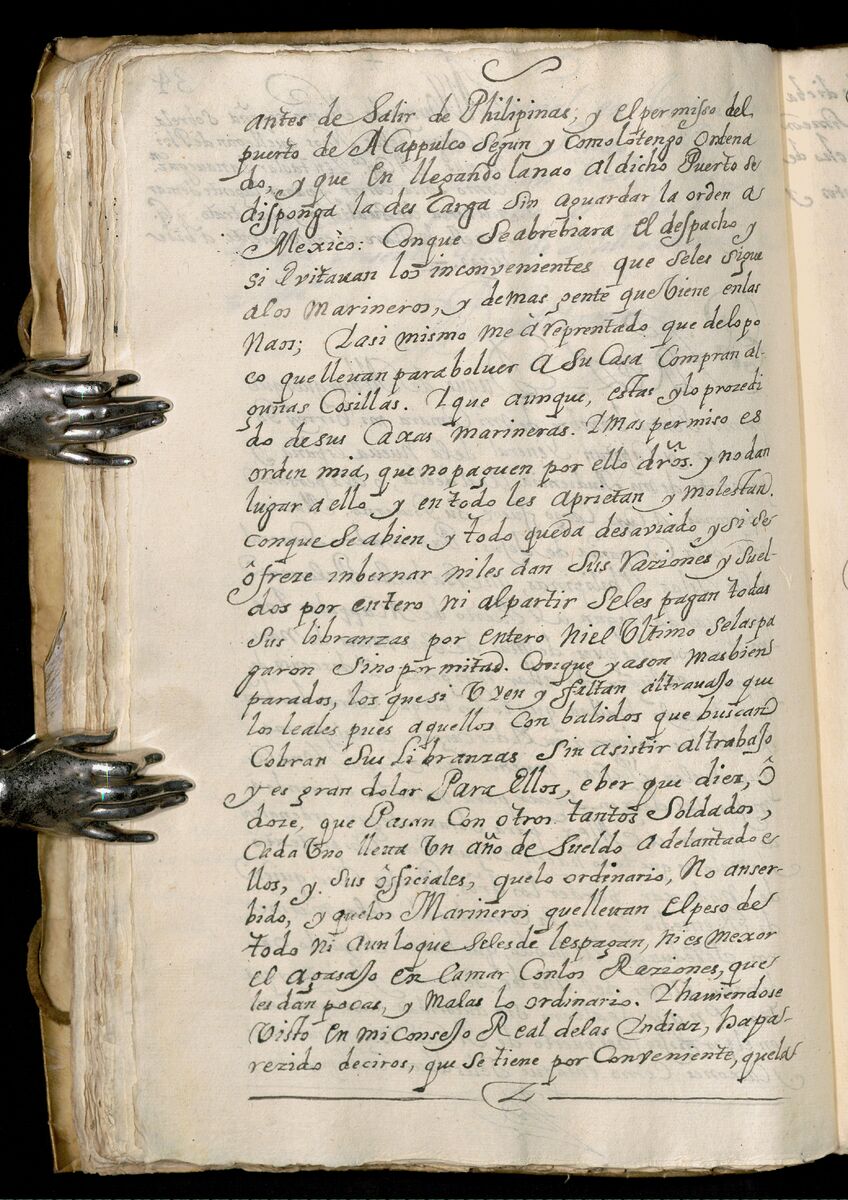 antes de Salir de Philipinas; y el permisso del
puerto de ACappulco Segun y Comolotengo Ordena
do, y que En llegando lanao Aldicho Puerto se
disponga la des Carga Sin aguardar la orden de
Mexico: Conque Seabrebiara El despacho y
si Evitauan los inconvenientes que Seles sigue
alos Marineros, y demas gente queViene enlas
Naos; Yasi mismo me à rreprentado que delopo
co quelleuan parabolver A Su Casa Compran al-
gunas Cosillas. Yque aunque, estas ylo prozedi
do desus Caxas Marineras. Ymas permiso es
orden mia, que nopaguen por ello dr̃os. y nodan
lugar aello y entodo les Aprietan y molestan.
Conque Seabien y todo queda desaviado y si se
ôfreze inbernar niles dan Sus Raziones y suel-
dos por entero ni alpartir Seles pagan todas
Sus libranzas por entero niel Ultimo Selaspa
garon Sinopor mitad. Conque yason Masbien
parados, los quesi Uyen y faltan altrauajo que
los leales pues aquellos Con balidos que buscan
Cobran Sus libranzas Sin asistir altrabajo
y es gran dolor Para Ellos, eber que diez, ô
doze, que Pasan Con otros tantos Soldados,
Cada Uno lleua Un año de Sueldo Adelantado e
llos, y Sus ôfficiales, quelo ordinario, No anser-
bido, y quelos Marineros quelleuan Elpeso de
todo ni Aunloque Selesde lespagan, nies mexor
el agasajo en lamar Conlos Raziones, que
les dan pocas, y Malas lo ordinario. Yhauiendose
Visto En miConsejo Real delas Yndias, hapa-
rezido deciros, que se tiene por Conveniente, quela